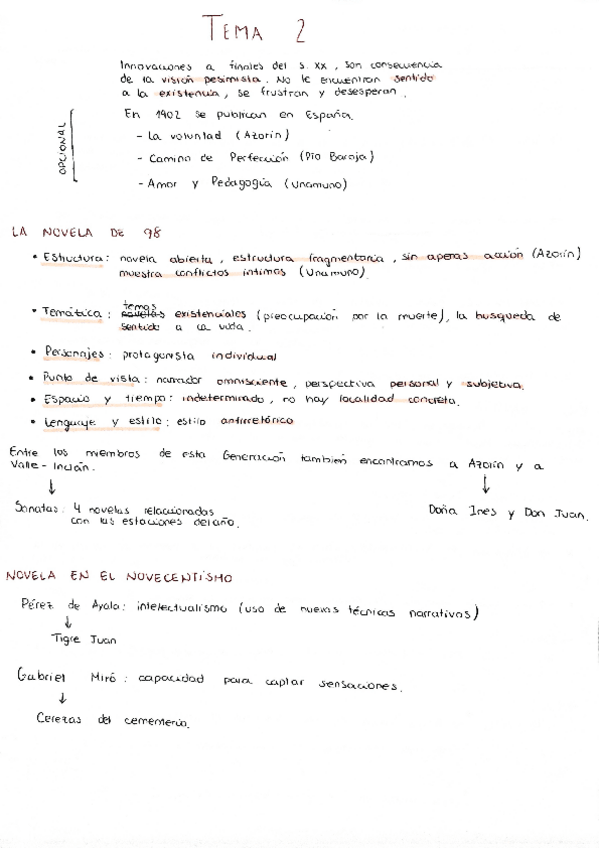 TEMA 2
Innovaciones a finales del s. XX, son consecuencia
de la visión pesimista. No le encuentran sentido
a la existencia, se frustran y desesperan.
OPCIONAL
En 1902 se publican en España
- La voluntad (Azorín)
- Camino de Perfección (Pío Baroja)
- Amor y Pedagogia (Unamuno)
LA NOVELA DE 98
• Estructura: novela abierta, estructura fragmentaria, sin apenas acción (Azorín)
muestra conflictos íntimos (Unamuno)
temas
• Temática: novelas existenciales (preocupación por la muerte), la busqueda de
sentido a la vida.
• Personajes: protagonista individual
• Punto de vista: narrador omnisciente, perspectiva personal y subjetiva.
• Espacio y tiempo: indeterminado, no hay localidad concreta.
• Lenguaje y estilo: estilo antirretórico
Entre los miembros de esta Generación también encontramos a Azorín y a
Valle-Inclán.
↓ ↓
Sonatas: 4 novelas relacionadas
con las estaciones del año.
Doña Ines y Don Juan.
NOVELA EN EL NOVECENTISMO
Pérez de Ayala: intelectualismo (uso de nuevas técnicas narrativas)
↓
Tigre Juan
Gabriel Miró: capacidad para captar sensaciones.
↓
Cerezas del cementerio.